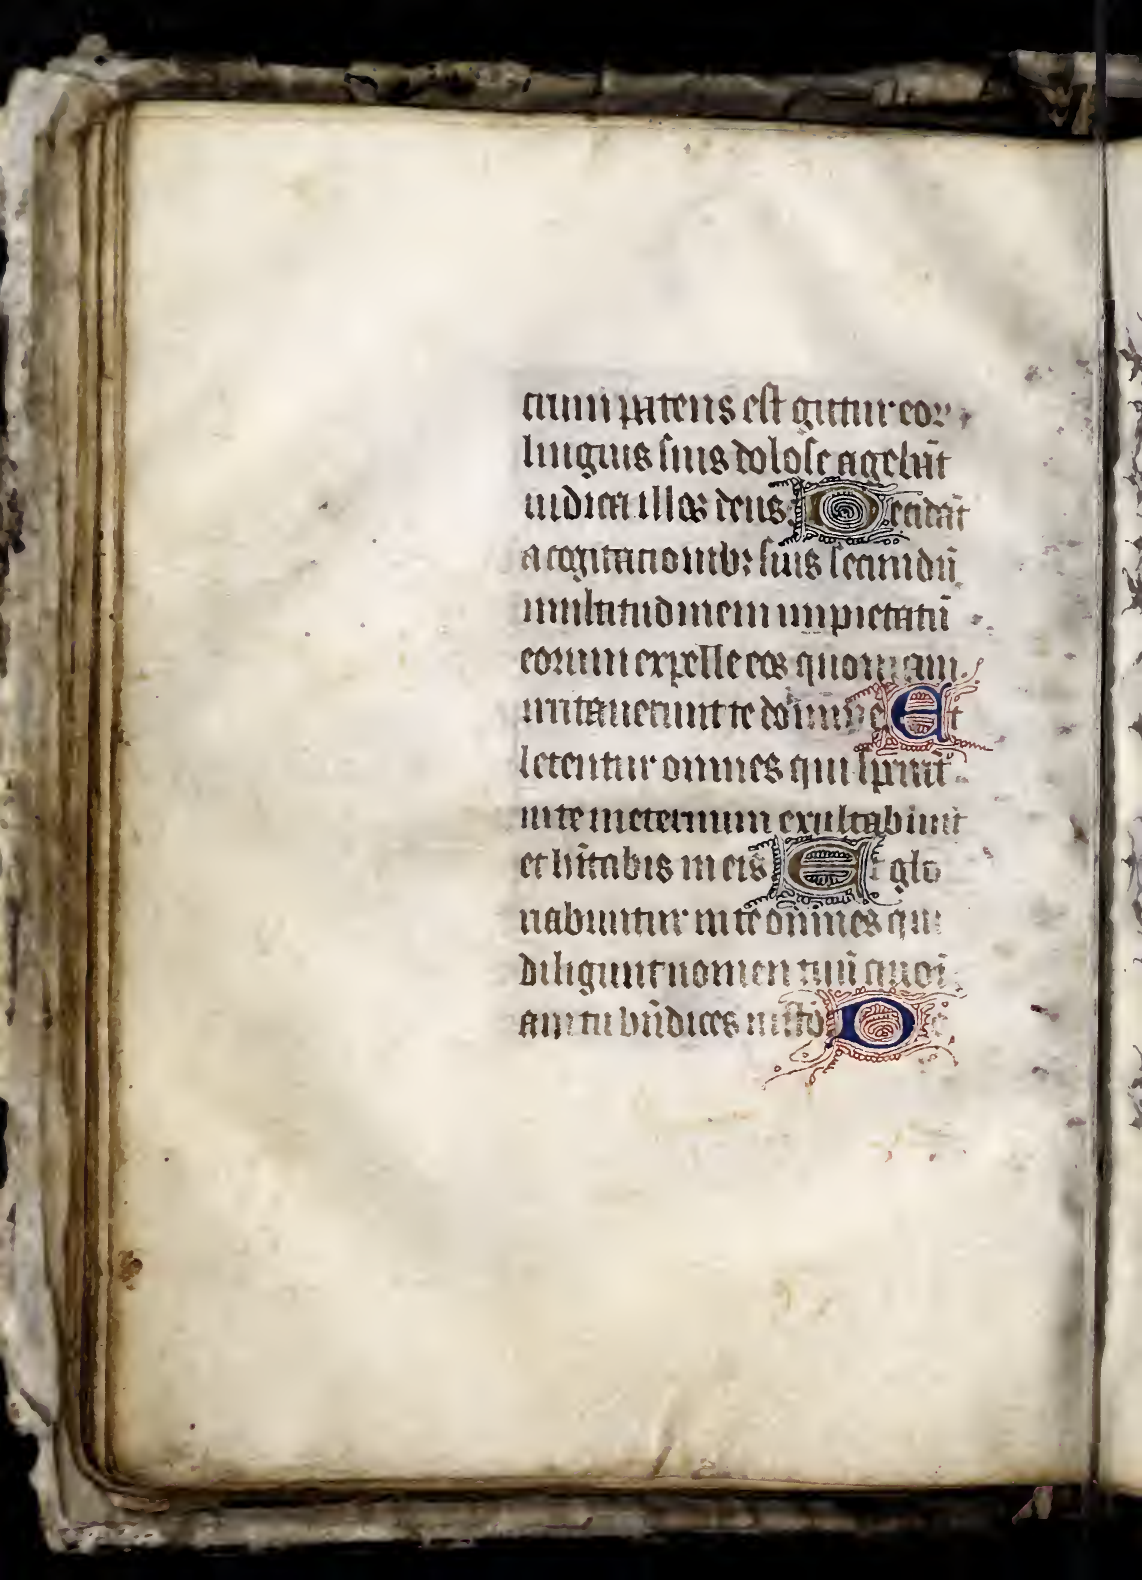 crum patens est guttur eoꝝ
linguis suis dolose agebāt
iudica illos deus Decidāt
a cogitacionibꝫ suis secundū
multitudinem impietatū
eorum expelle eos quoniam
irritauerunt te domine Et
letentur omnes qui sperāt
in te in eternum exultabunt
et hītabis in eis Et glo
riabuntur in te omnes qui
diligunt nomen tuū quoī
am tu bn̄dices iusto D